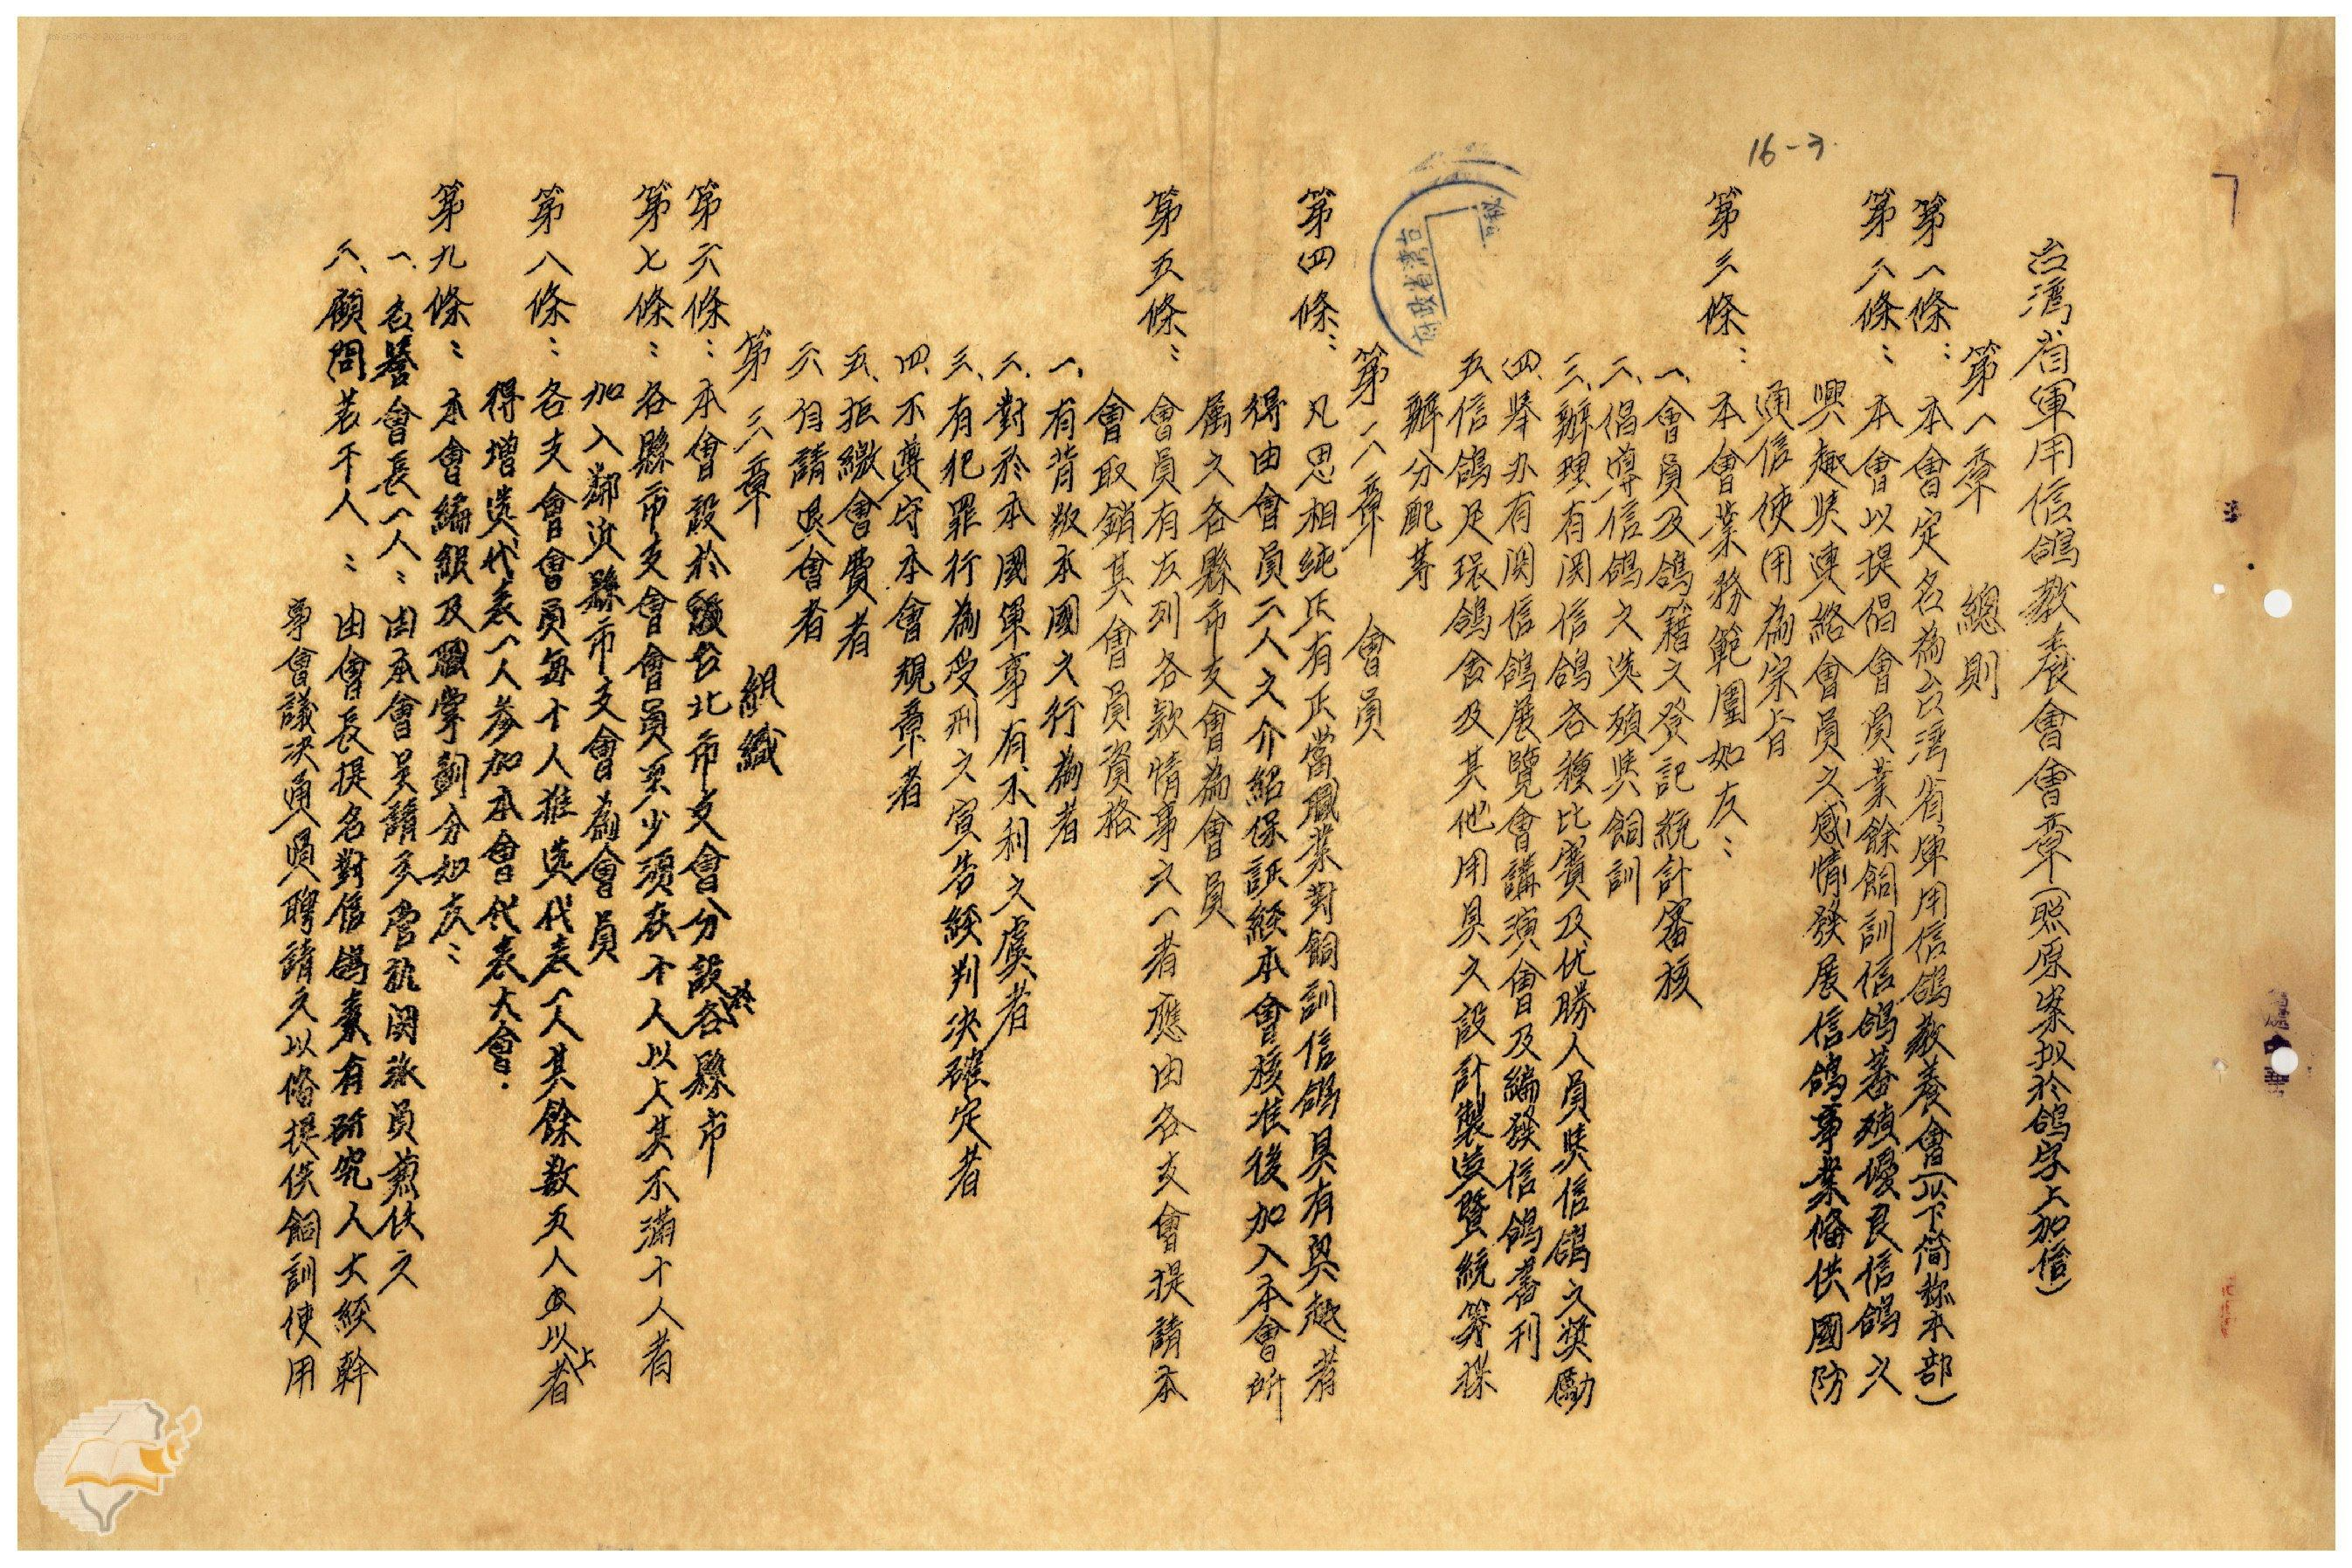 16-3.
台湾省軍用信鴿教養會會章(照原案拟於鴿字上加信)
第一章　總則
第一條：本會定名為台湾省軍用信鴿教養會(以下简称本部)
第二條：本會以提倡會員業餘飼訓信鴿蕃殖優良信鴿之
興趣奨連絡會員之感情發展信鴿事業俻供國防
通信使用為宗旨
第三條：本會業務範圍如左：
一、會員及鴿籍之登記統計審核
二、倡導信鴿之选殖奨飼訓
三、辦理有関信鴿各種比賽及优勝人員奨信鴿之奨勵
四、举办有関信鴿展覽會講演會及編發信鴿書刊
五、信鴿足环鴿舍及其他用具之設計製造暨統筹採
辦分配等
台湾省政府
第二章　會員
第四條：凡思相純正有正當職業對飼訓信鴿具有興趣者
得由會員二人之介紹保証經本會核准後加入本會所
属之各縣市支會為會員
第五條：會員有左列各款情事之一者應由各支會提請本
會取銷其會員資格
一、有背叛本國之行為者
二、對於本國軍事有不利之虞者
三、有犯罪行為受刑之宣告經判决確定者
四、不遵守本會規章者
五、拒繳會費者
六、自請退會者
第三章　組織
第六條：本會設於台北市支會分設於各縣市
第七條：各縣市支會會員至少須在十人以上其不滿十人者
加入鄰近縣市支會為會員
第八條：各支會會員每十人推选代表一人其餘数五人以上者
得增选代表一人参加本會代表大會.
第九條：本會編組及職掌劃分如左：
一、名譽會長一人：由本會呈請主管机関派員兼任之
二、顧問若干人：由會長提名對信鴿素有研究人士經幹
事會議决通過聘請之以俻提供飼訓使用